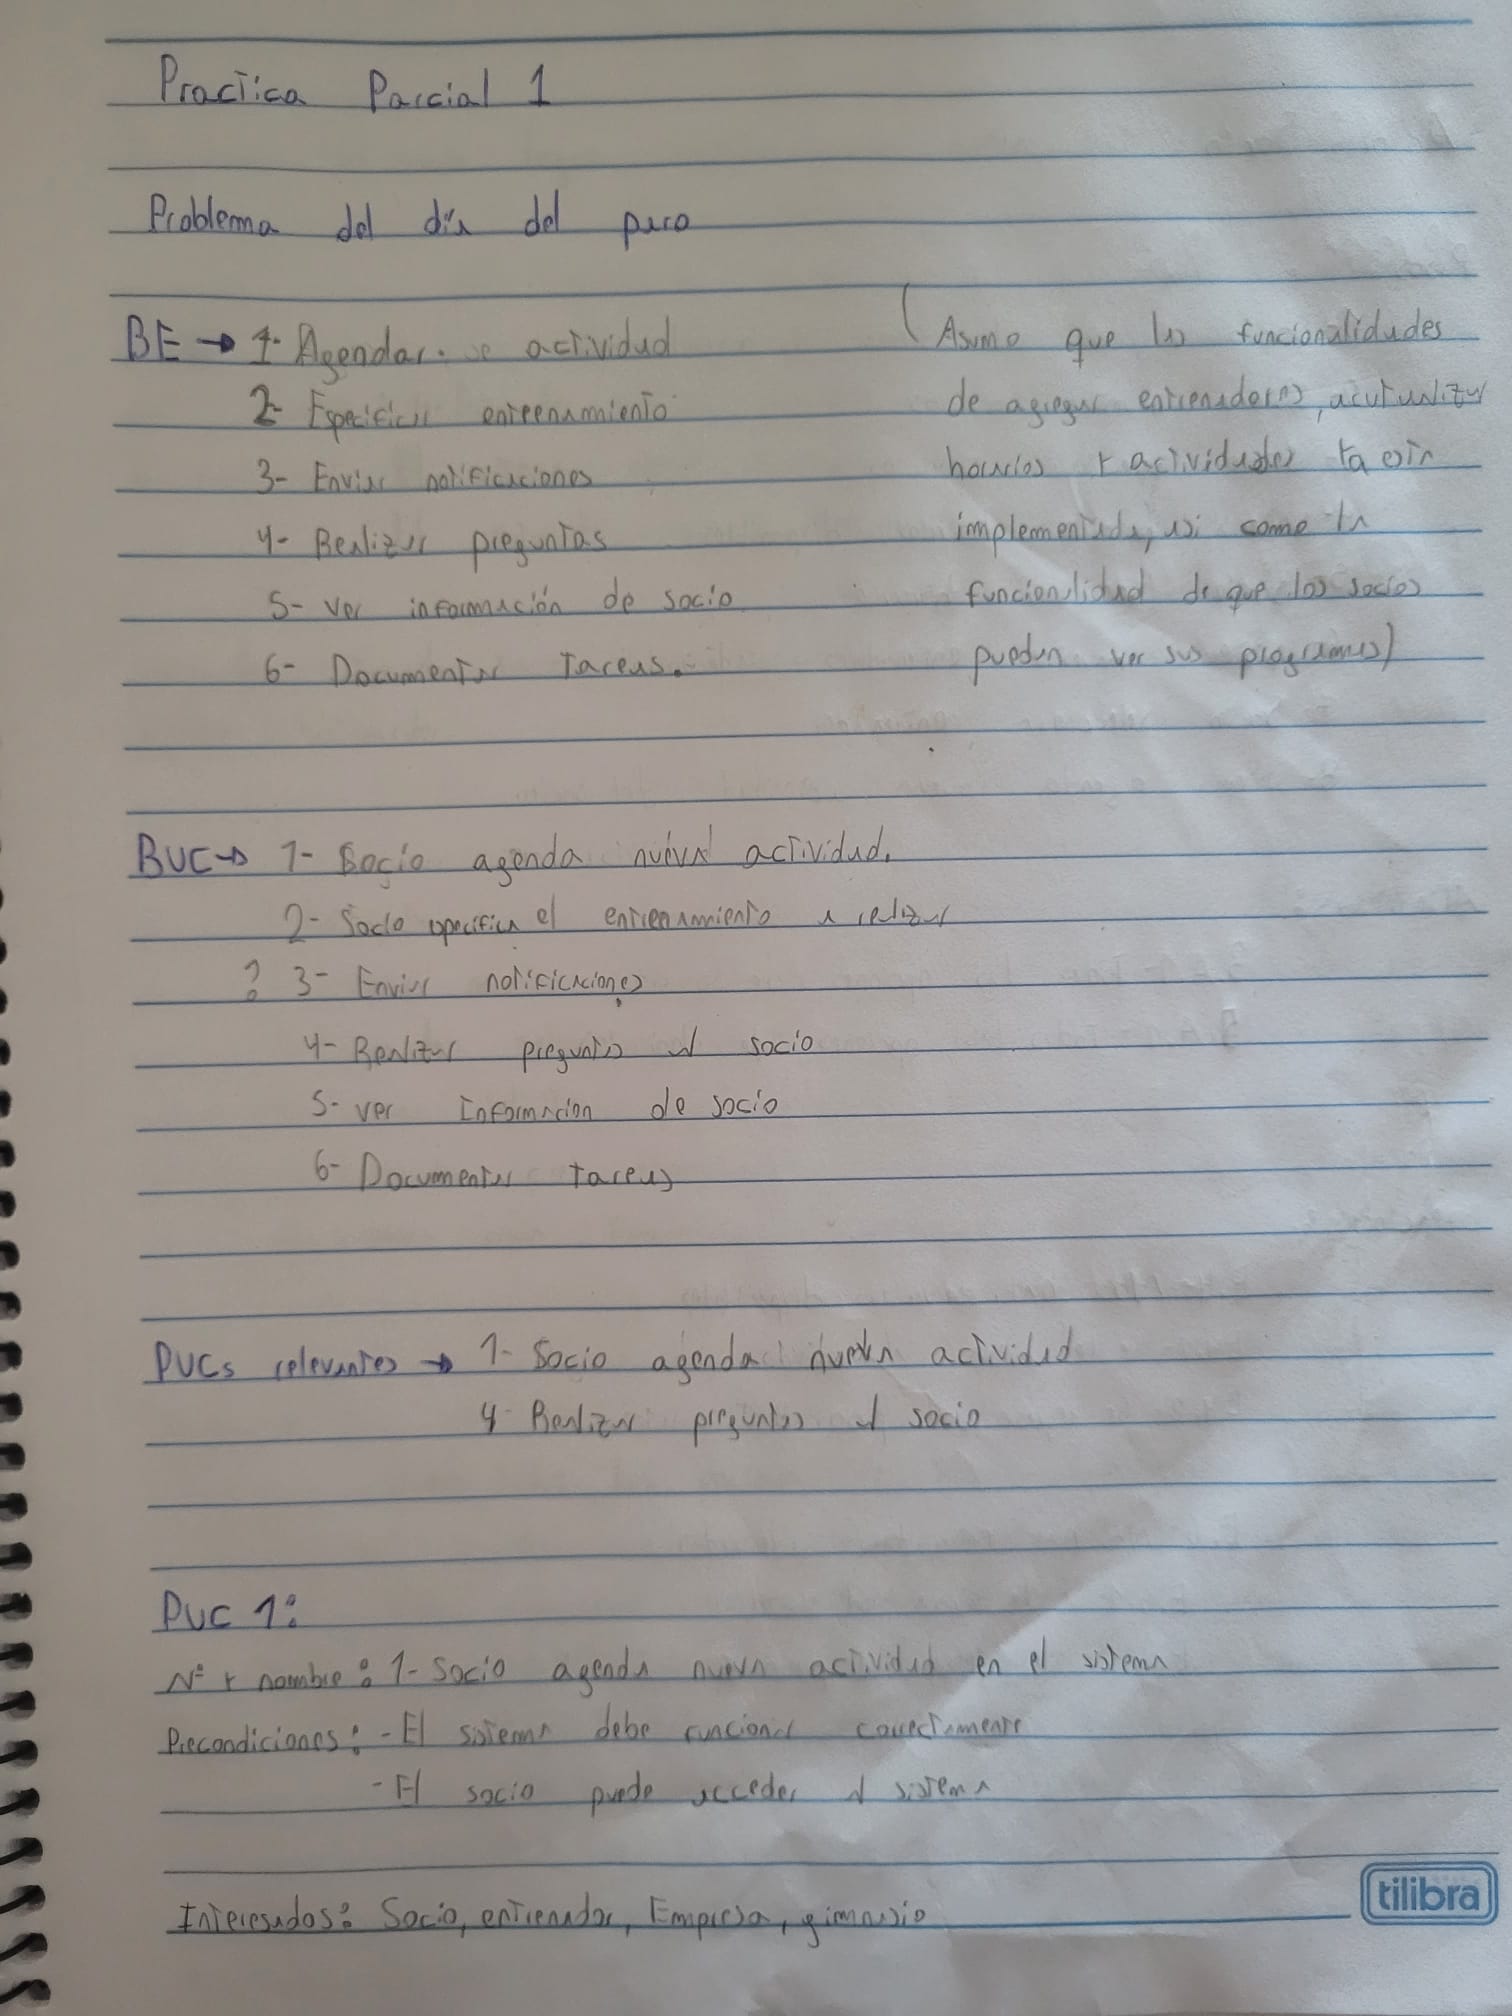 Practica Parcial 1
Problema del día del paro
BE → 1- Agendar actividad
2- Especificar entrenamiento
3- Enviar notificaciones
4- Realizar preguntas
5- ver información de socio
6- Documentar tareas.
(Asumo que las funcionalidades
de agregar entrenadores, acutualizar
horarios y actividades ya está
implementada, asi como la
funcionalidad de que los socios
pueden ver sus programas)
BUC → 1- Socio agenda nueva actividad.
2- Socio especifica el entrenamiento a realizar
? 3- Enviar notificaciones
4- Realizar preguntas al socio
5- ver Informacion de socio
6- Documentar tareas
PUCs relevantes → 1- Socio agenda nueva actividad
4- Realizar preguntas al socio
PUC 1:
Nº y nombre: 1- Socio agenda nueva actividad en el sistema
Precondiciones: - El sistema debe funcionar correctamente
- El socio puede acceder al sistema
Interesados: Socio, entrenador, Empresa, gimnasio
tilibra